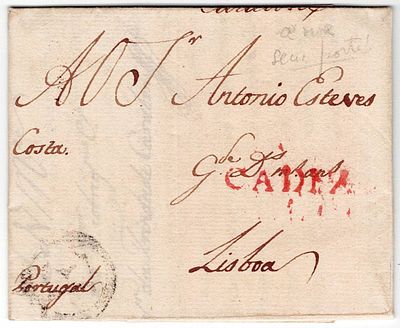 AO Sr Antonio Esteves
Costa.
Gde Ds
CADIZ
Lisboa
Portugal